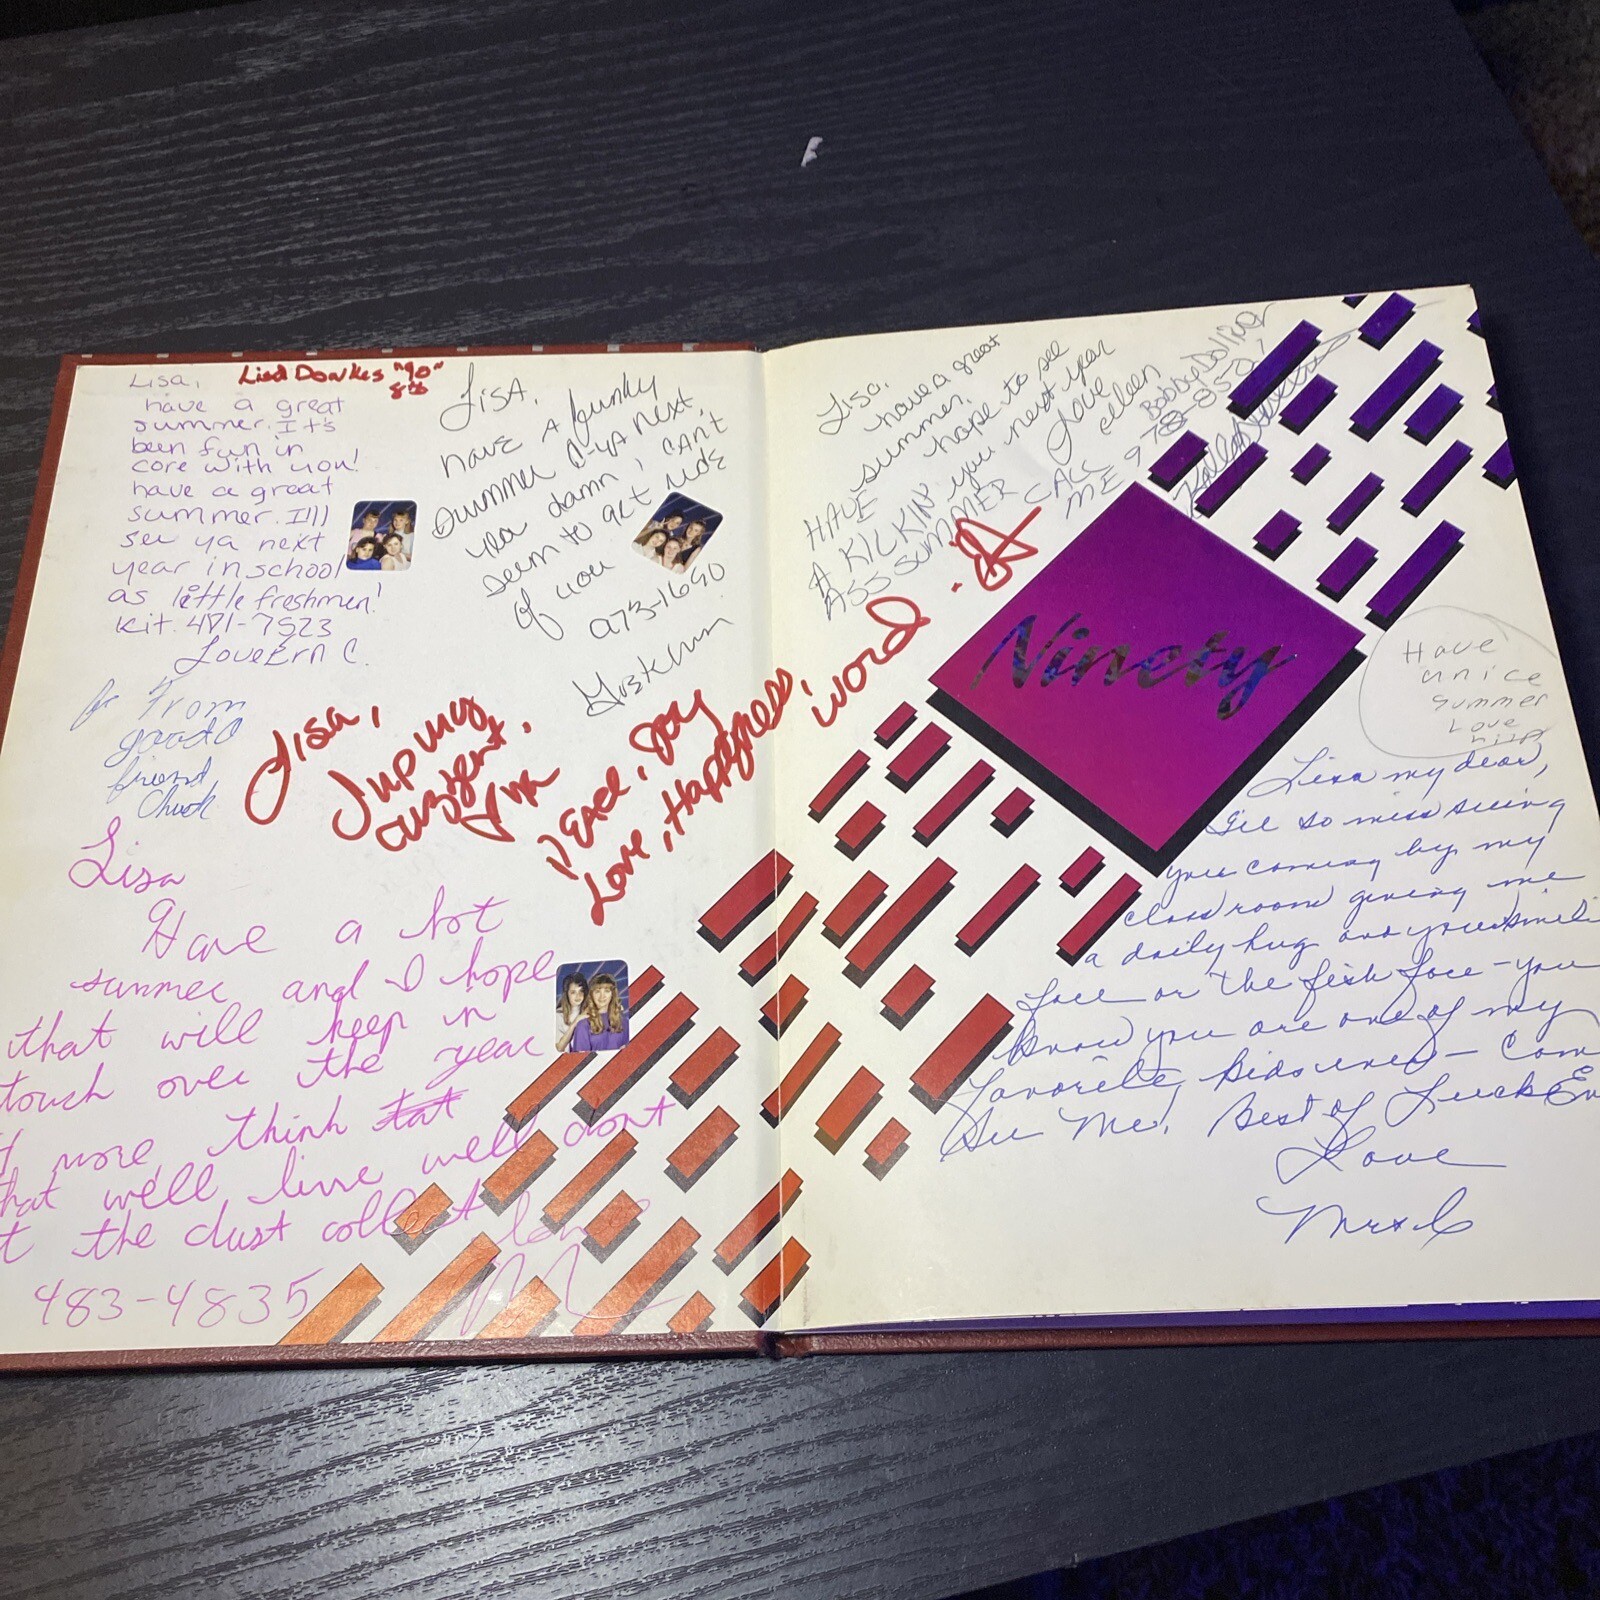 Lisa,
have a great
summer. It's
been fun in
core with you!
have a great
summer. I'll
see ya next
year in school
as little freshmen!
Kit. 481-7523
Love Ern C.
"90"
8th
LiSA.
HAVE A funky
summer C-ya next
yea damn, CAn't
seem to get ride
of you
273-1690
From
good
friend,
Chuck
Lisa,
PEACE, Joy
Love, Happyness,
word.
Lisa
Have a hot
summer and I hope
that will keep in
touch over the year
more, think
that we'll live well dont
the dust collect
483-4835
Lisa,
have a great
summer.
hope to see
you next year
Love
eileen
HAVE
A KICKIN'
ASS SUMMER
CALL
ME
Bobby
Ninety
Have
a nice
summer
Love
Lisa my dear,
I'll so miss seeing
you coming by my
classroom giving me
a daily hug and your
face or the fish face - you
know you are one of my
favorite kids ever - Com
See Me! Best of Luck
Love